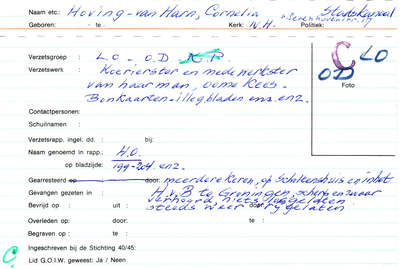 Naam etc.: Hoving-van Harn, Cornelia Stadskanaal
Geboren: - te Kerk: N.H. Politiek:
Verzetsgroep : L.O. - O.D. K.P. C LO
Verzetswerk : Koerierster en medewerkster OD
van haar man, oome Kees. Foto
Bonkaarten-illegbladen enz. enz.
Contactpersonen:
Schuilnamen :
Verzetsrapp. ingel. dd. : bij:
Naam genoemd in rapp.: H.O.
op bladzijde: 199-204. enz.
Gearresteerd door: meerdere keren, op Scholtenshuis en in het
Gevangen gezeten in : H.v.B te Groningen, scherp en zwaar
verhoord, niets losgelaten
Bevrijd op : uit : door : steeds weer vrijgelaten
Overleden op : door: te :
Begraven op : te :
Ingeschreven bij de Stichting 40/45:
C Lid G.O.I.W. geweest: Ja / Neen